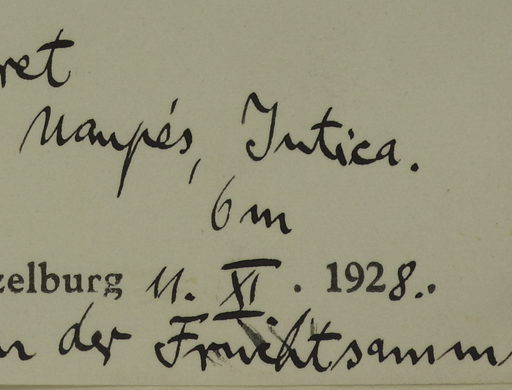 ret
Uaupés, Jutica.
6m
zelburg 11. XI. 1928.
n der Fruchtsamm